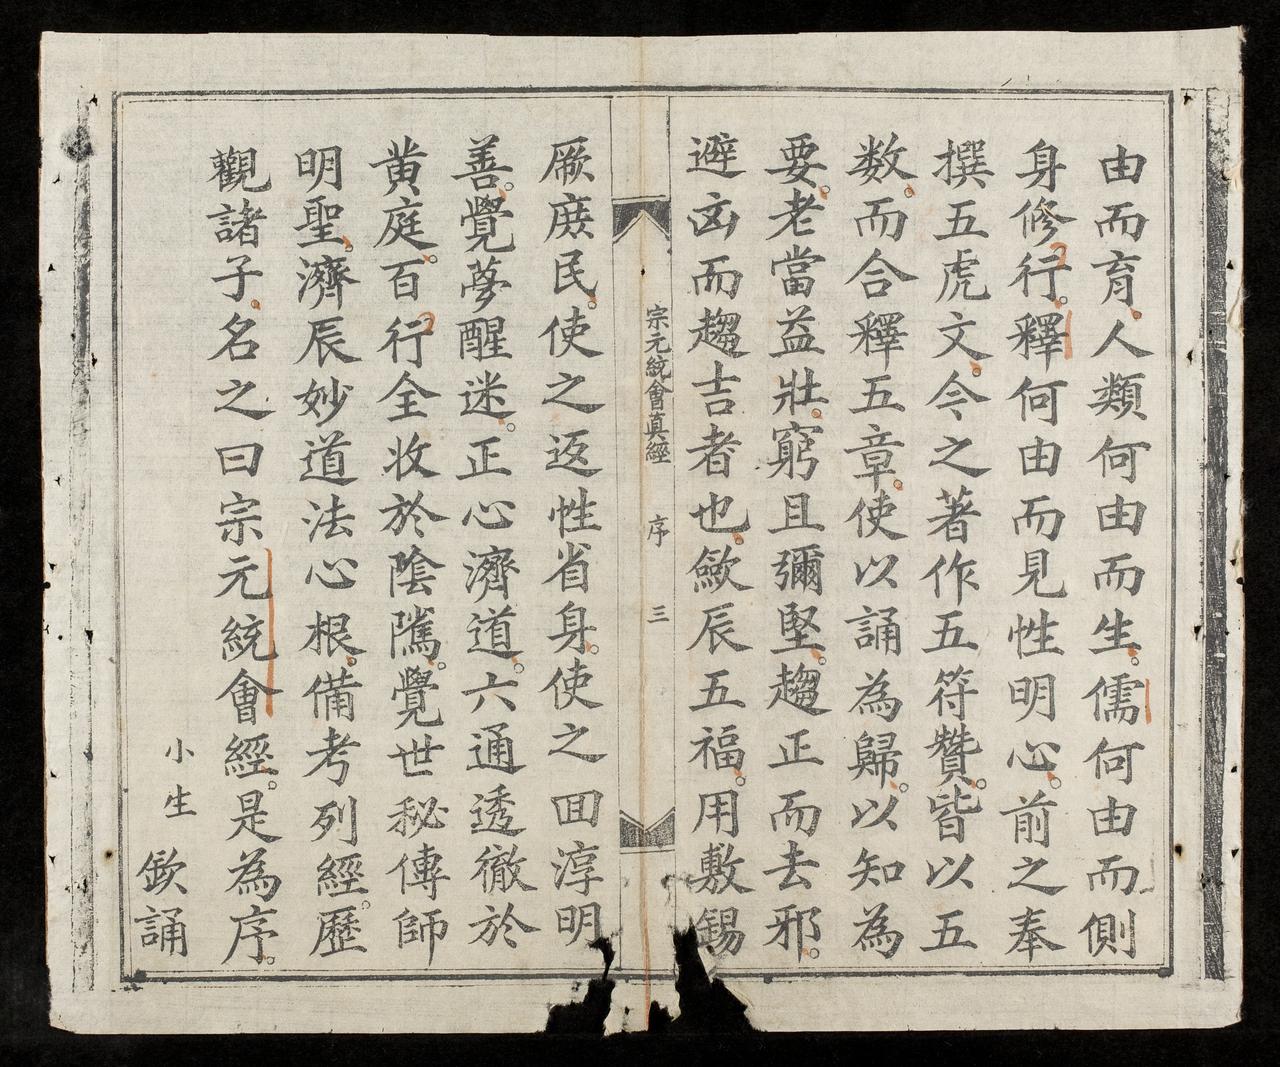 由而育。人類何由而生。儒何由而側
身修行。釋何由而見性明心。前之奉
撰五虎文。今之著作五符贊。皆以五
数。而合釋五章。使以誦為歸。以知為
要。老當益壯。窮且彌堅。趨正而去邪。
避凶而趨吉者也。斂辰五福。用敷錫
宗元統會真經 序 三
厥庶民。使之返性省身。使之囬淳明
善。覺夢醒迷。正心濟道。六通透徹於
黄庭。百行全收於陰隲。覺世秘傳師
明聖。濟辰妙道法心根。備考列經。歷
觀諸子。名之曰宗元統會經。是為序。
小生 欽誦